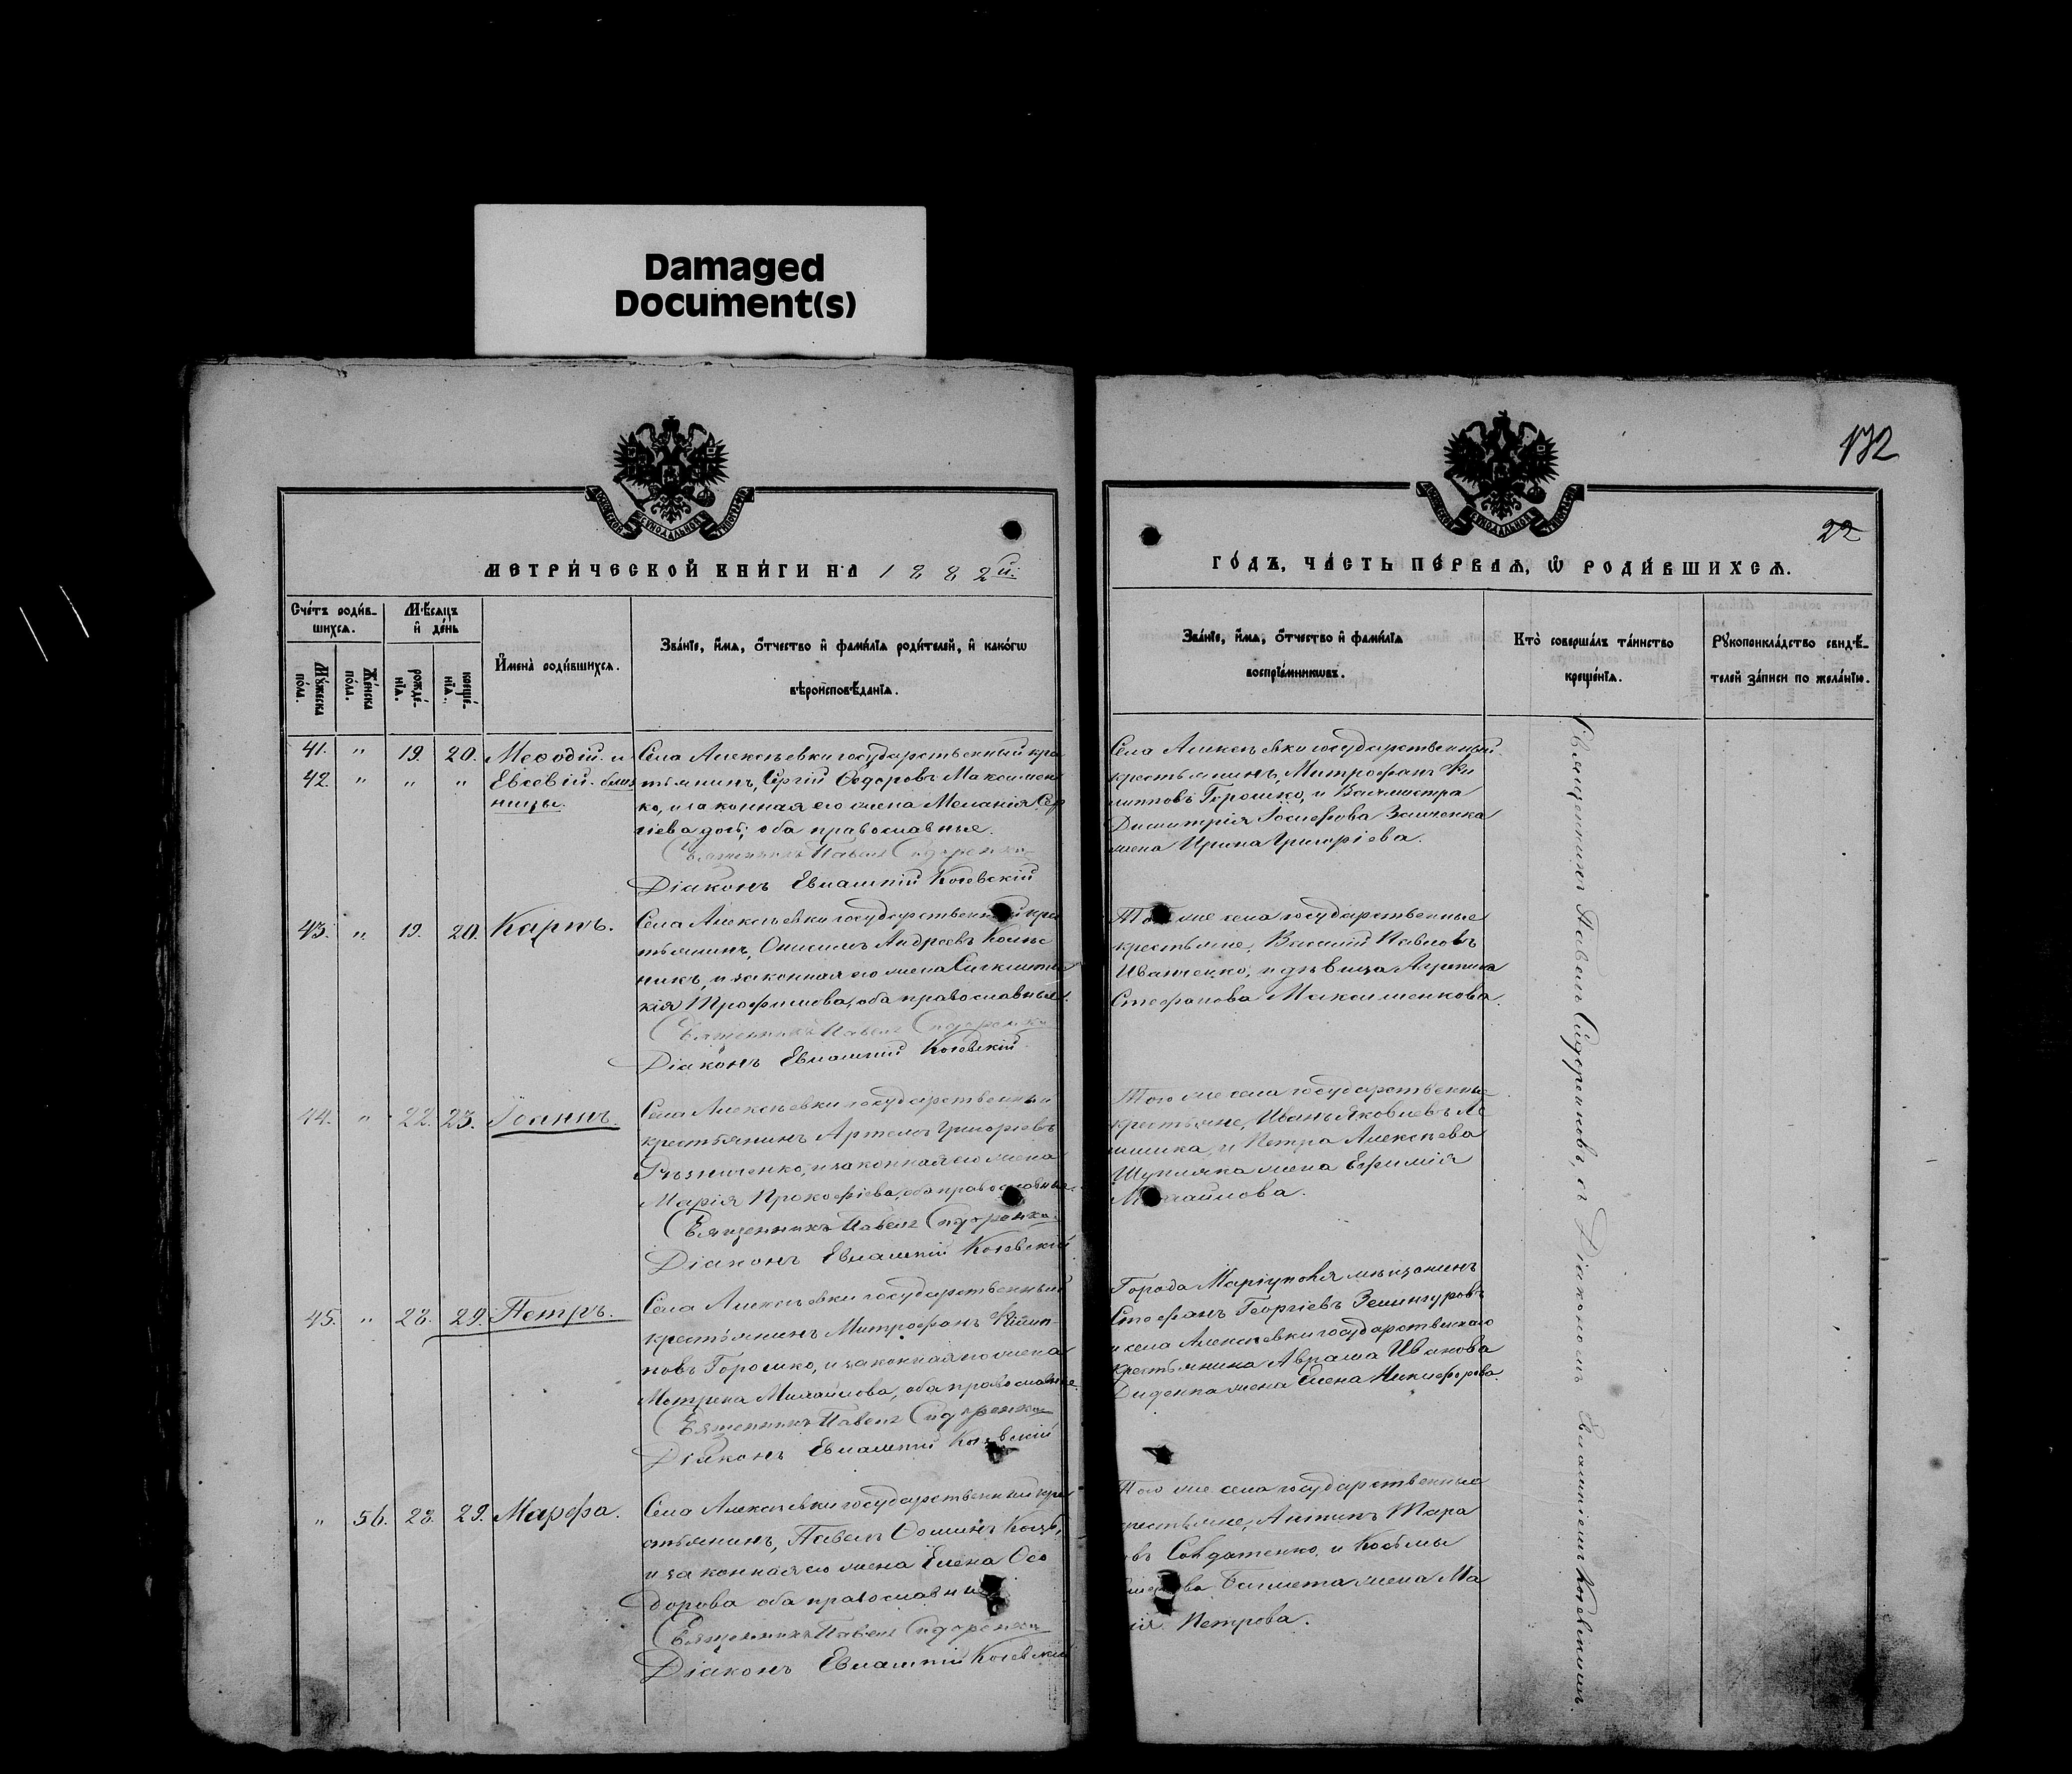 Damaged
Document(s)
132
22
МЕТРИ́ЧЕСКОЙ КНИ́ГИ НА 1882й.
ГО́ДЪ, ЧА́СТЬ ПЕ́РВАЯ, Ѡ РОДИ́ВШИХСЯ.
Сче́тъ роди́в-
шихся.
Му́жеска
по́ла.
Же́нска
по́ла.
Мѣ́сяцъ
и де́нь
рожде́-
нія.
креще́-
нія.
Имена̀ роди́вшихся.
Зва́ніе, и́мя, о́тчество и фами́лія роди́телей, и како́гѡ
вѣроисповѣ́данія.
Зва́ніе, и́мя, о́тчество и фами́лія
воспріе́мниковъ.
Кто̀ соверша́лъ та́инство
креще́нія.
Рукоприкла́дство свидѣ́-
телей за́писи по жела́нію.
41. " 19. 20. Меѳодій и
42. " " " Евсевій близ
ницы.
Села Алексѣевки государственный кре
стьянинъ, Сергій Ѳедоровъ Максимен
ко, и законная его жена Меланія Сер
гіева дочь; оба православные.
Священникъ Павелъ Сидоренко
Діаконъ Евлампій Косовскій
Села Алексѣевки государственный
крестьянинъ, Митрофанъ Фи
липповъ Горошко, и
Димитрія Іосифова
жена Ирина Григоріева.
43. " 19. 20. Карпъ.
Села Алексѣевки государственный кре
стьянинъ, Онисимъ Андреевъ
никъ, и законная его жена
кія Трофимова, оба православные.
Священникъ Павелъ Сидоренко
Діаконъ Евлампій Косовскій
Того же села государственные
крестьяне, Василій Павловъ
Иванченко, и дѣвица
Стефанова Максименкова.
44. " 22. 23. Іоаннъ.
Села Алексѣевки государственный
крестьянинъ Артемъ Григорьевъ
Рѣзниченко, и законная его жена
Марія Прокофіева, оба православные.
Священникъ Павелъ Сидоренко
Діаконъ Евлампій Косовскій
Того же села государственные
крестьяне, Иванъ Яковлевъ
и Петра Алексѣева
Шупляка жена Ефимія
Михайлова.
45. " 28. 29. Петръ.
Села Алексѣевки государственный
крестьянинъ Митрофанъ Филип-
повъ Горошко, и законная его жена
Мотрена Михайлова, оба православные.
Священникъ Павелъ Сидоренко
Діаконъ Евлампій Косовскій
Города Маріуполя мѣщанинъ
Стефанъ Георгіевъ
и села Алексѣевки государственнаго
крестьянина Аврама Иванова
Диденка жена Елена Никифорова
" 56. 28. 29. Марфа.
Села Алексѣевки государственный кре
стьянинъ, Павелъ Ѳоминъ
и законная его жена Елена Ѳео
дорова оба православные
Священникъ Павелъ Сидоренко
Діаконъ Евлампій Косовскій
Того же села государственные
крестьяне, Антипъ Тара
овъ Солдатенко, и Косьмы
жена Ма
Петрова.
Священникъ Павелъ Сидоренковъ, съ Діакономъ Евлампіемъ Косовскимъ.